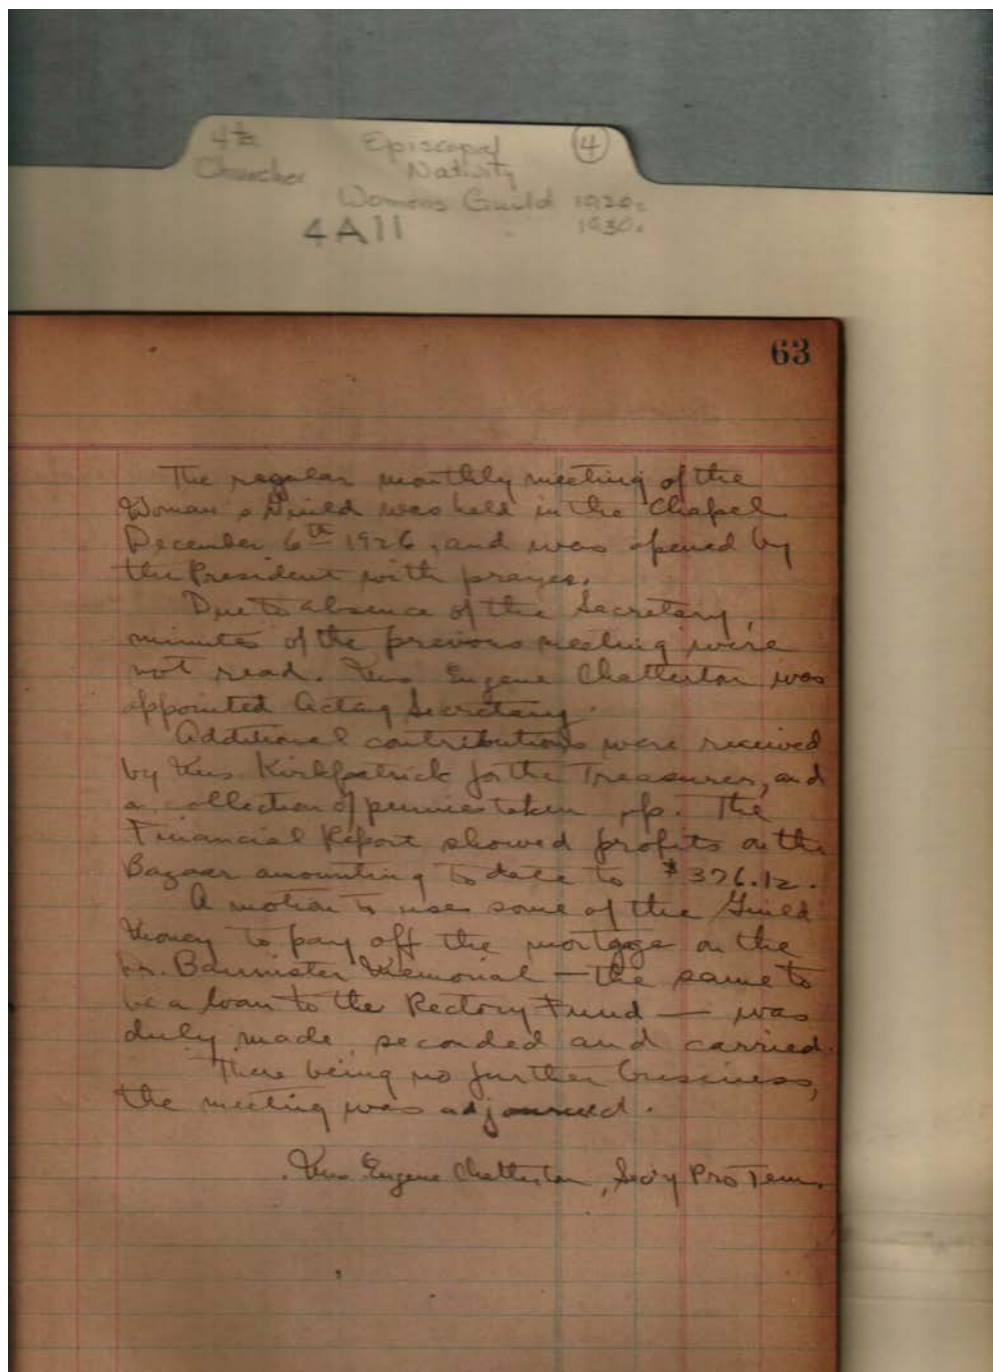 4 Episcopal 4
Churches Nativity
Womens Guild 1920s
4A11 1930s
63
The regular monthly meeting of the
Woman's Guild was held in the Chapel
December 6th 1926, and was opened by
the President with prayer.
Due to absence of the Secretary,
minutes of the previous meeting were
not read. Mrs Eugene Chatterton was
appointed Acting Secretary.
Additional contributions were received
by Mrs. Kirkpatrick for the Treasurer, and
a collection of pennies taken up. The
Financial Report showed profits on the
Bazaar amounting to date to $376.12.
A motion to use some of the Guild
Money to pay off the mortgage on the
Dr. Bannister Memorial — the same to
be a loan to the Rectory Fund — was
duly made, seconded and carried.
There being no further business,
the meeting was adjourned.
Mrs Eugene Chatterton, Sec'y Pro Tem.